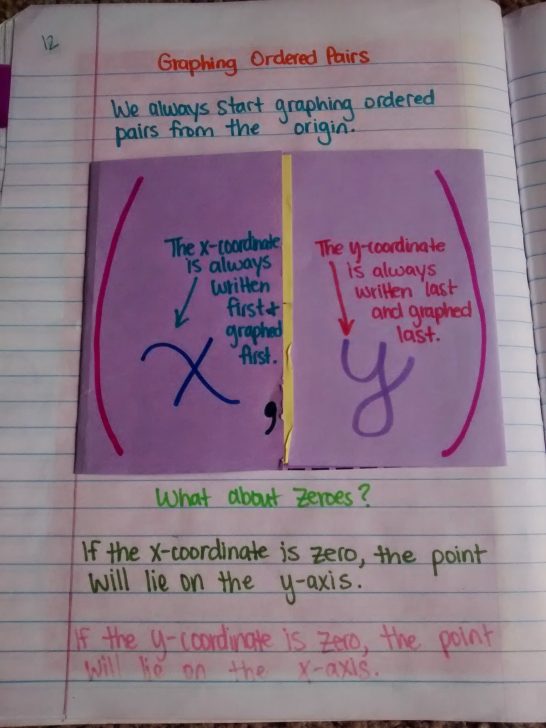 12
Graphing Ordered Pairs
We always start graphing ordered
pairs from the origin.
(
The x-coordinate
is always
written
first &
graphed
first.
x
,
The y-coordinate
is always
written last
and graphed
last.
y
)
What about zeroes?
If the x-coordinate is zero, the point
will lie on the y-axis.
If the y-coordinate is zero, the point
will lie on the x-axis.